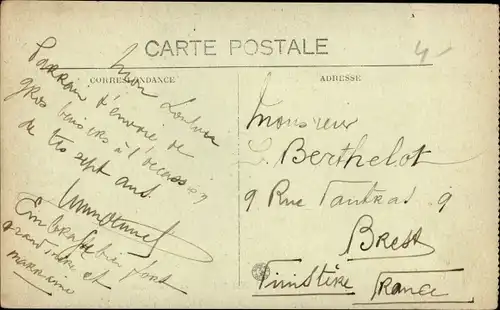 CARTE POSTALE
4
CORRESPONDANCE
ADRESSE
Mon
Parrain t'envoie de
gros baisers à l'occasion
de tes sept ans.
Embrasse bien fort
grand'mère et
marraine
Monsieur
L. Berthelot
9 Rue 9
Brest
Finistère France